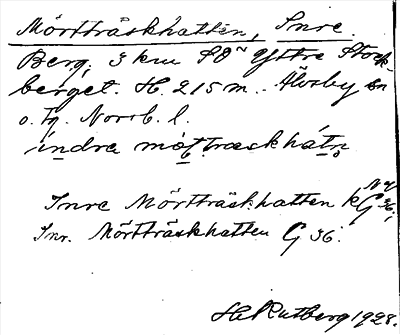 Mörtträskhatten, Inre.
Berg, 3 km SO Yttre Stock-
berget. H. 215 m. Älvsby sn
o. tg. Norrb. l.
indra mötræskhátn
Inre Mörtträskhatten k G 36;
Inr. Mörtträskhatten G 36.
H Rutberg 1928.